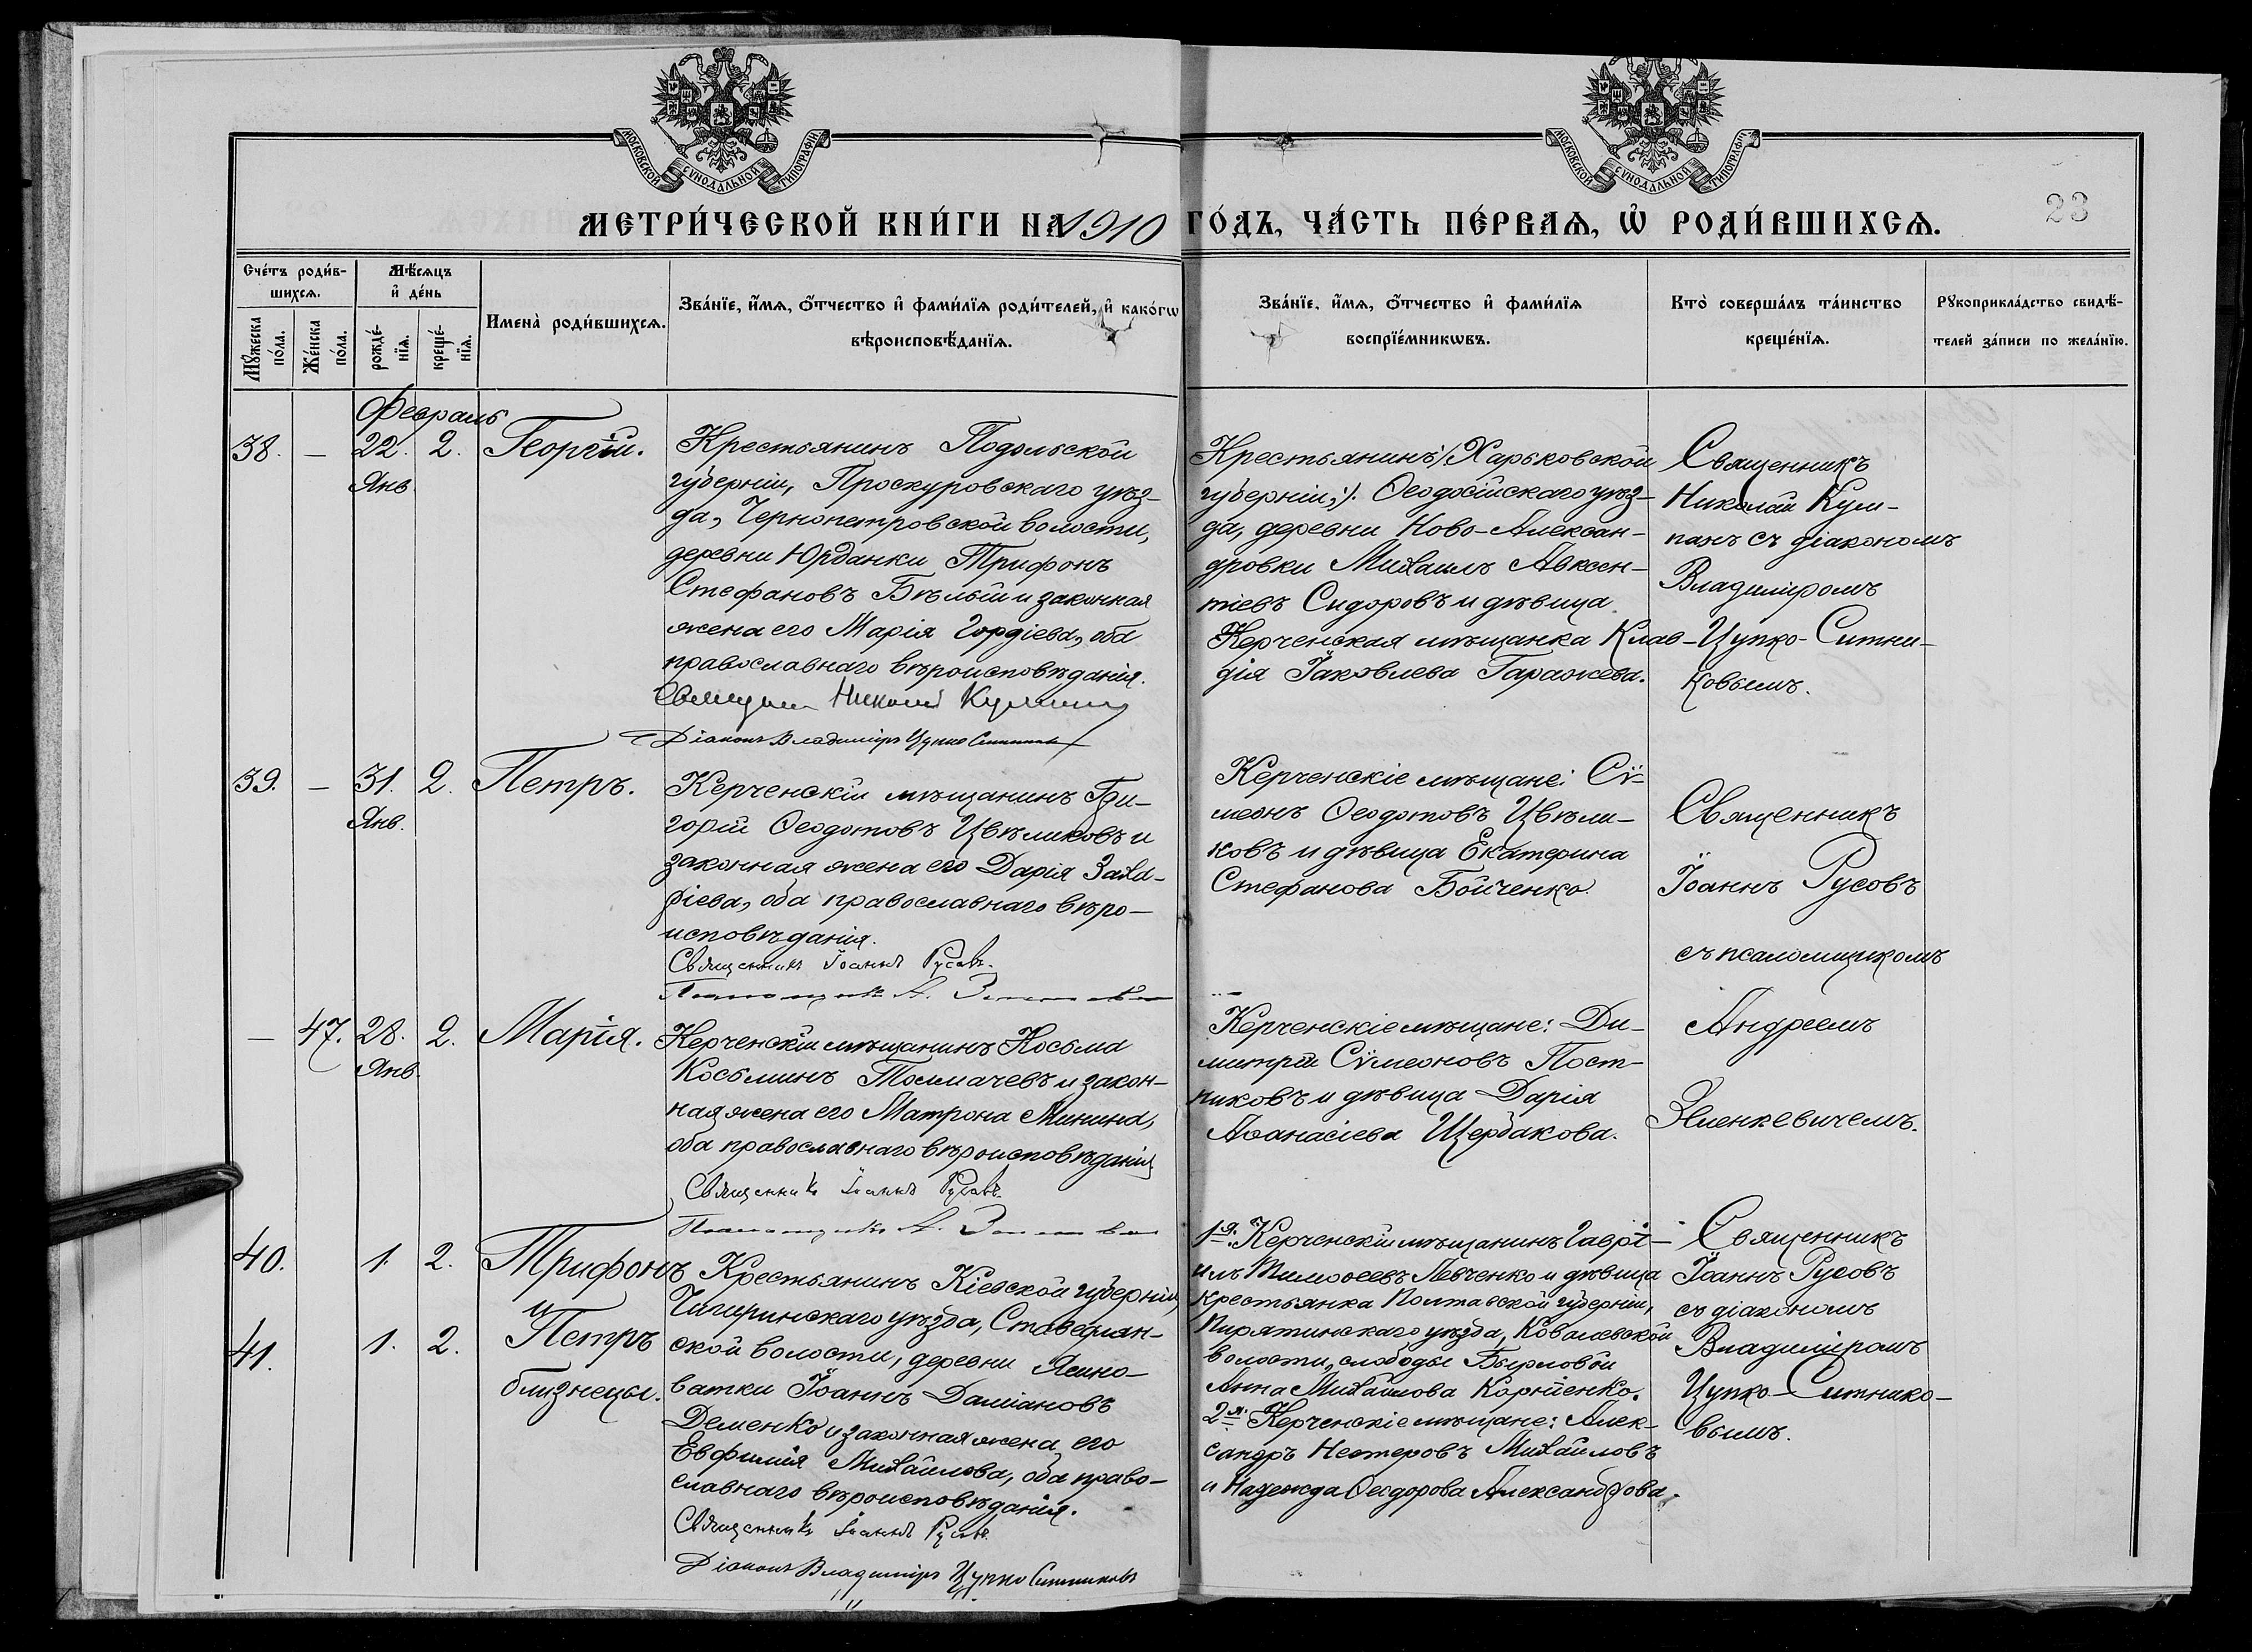 МОСКОВСКОЙ СУНОДАЛЬНОЙ ТИПОГРАФІИ
МОСКОВСКОЙ СУНОДАЛЬНОЙ ТИПОГРАФІИ
МЕТРИ́ЧЕСКОЙ КНИ́ГИ НА 1910 ГО́ДЪ, ЧА́СТЬ ПЕ́РВАѦ, Ѡ҆ РОДИ́ВШИХСѦ.
23
Сче́тъ роди́в-
шихсѧ.
Мѣ́сѧцъ
и҆ де́нь
Мꙋ́жеска
по́ла.
Же́нска
по́ла.
рожде́-
нїѧ.
креще́-
нїѧ.
Имена̀ роди́вшихсѧ.
Зва́нїе, и҆́мѧ, ѻ҆́тчество и҆ фами́лїѧ роди́телей, и҆ како́гѡ
вѣроисповѣ́данїѧ.
Зва́нїе, и҆́мѧ, ѻ҆́тчество и҆ фами́лїѧ
воспрїе́мникѡвъ.
Кто̀ соверша́лъ та́инство
креще́нїѧ.
Рꙋкоприкла́дство свидѣ́-
телей за́писи по жела́нїю.
Февраль
38. — 22. 2. Георгій.
Янв.
Крестьянинъ Подольской
губерніи, Проскуровскаго уѣз-
да, Чернопетровской волости,
деревни Юрданки Трифонъ
Стефановъ Бѣлый и законная
жена его Марія Гордіева, оба
православнаго вѣроисповѣданія.
Священникъ Николай Кулпанъ
Діаконъ Владиміръ Цупко Ситниковъ
Крестьянинъ /Харьковской
губерніи;/. Ѳеодосійскаго уѣз-
да, деревни Ново-Алексан-
дровки Михаилъ Авксен-
тіевъ Сидоровъ и дѣвица
Керченская мѣщанка Клав-
дія Іаковлева Гаражева.
Священникъ
Николай Кул-
панъ съ діакономъ
Владиміромъ
Цупко-Ситни-
ковымъ.
39. — 31. 2. Петръ.
Янв.
Керченскій мѣщанинъ Гри-
горій Ѳеодотовъ Цвѣликовъ и
законная жена его Дарія Заха-
ріева, оба православнаго вѣро-
исповѣданія.
Священникъ Іоаннъ Русовъ.
Псаломщикъ А.
Керченскіе мѣщане: Сѵ-
меонъ Ѳеодотовъ Цвѣли-
ковъ и дѣвица Екатерина
Стефанова Бойченко.
Священникъ
Іоаннъ Русовъ
съ псаломщикомъ
Андреемъ
Зленкевичемъ.
— 47. 28. 2. Марія.
Янв.
Керченскій мѣщанинъ Косьма
Косьминъ Толмачевъ и закон-
ная жена его Матрона Минина,
оба православнаго вѣроисповѣданія
Священникъ Іоаннъ Русовъ.
Псаломщикъ А.
Керченскіе мѣщане: Ди-
митрій Сѵмеоновъ Пост-
никовъ и дѣвица Дарія
Аѳанасіева Щербакова.
40. 1. 2. Трифонъ
и
41. 1. 2. Петръ
близнецы.
Крестьянинъ Кіевской губерніи,
Чигиринскаго уѣзда, Ставедлян-
ской волости, деревни Ясино-
ватки Іоаннъ Даміановъ
Деменко и законная жена его
Евфимія Михайлова, оба право-
славнаго вѣроисповѣданія.
Священникъ Іоаннъ Русовъ.
Діаконъ Владиміръ Цупко Ситниковъ
1-й. Керченскій мѣщанинъ Гаврі-
илъ Тимоѳеевъ Левченко и дѣвица
крестьянка Полтавской губерніи,
Пирятинскаго уѣзда, Ковалевской
волости, слободы Бырловой
Анна Михайлова Корніенко.
2-й. Керченскіе мѣщане: Алек-
сандръ Нестеровъ Михайловъ
и Надежда Ѳеодорова Александрова.
Священникъ
Іоаннъ Русовъ
съ діакономъ
Владиміромъ
Цупко-Ситнико-
вымъ.